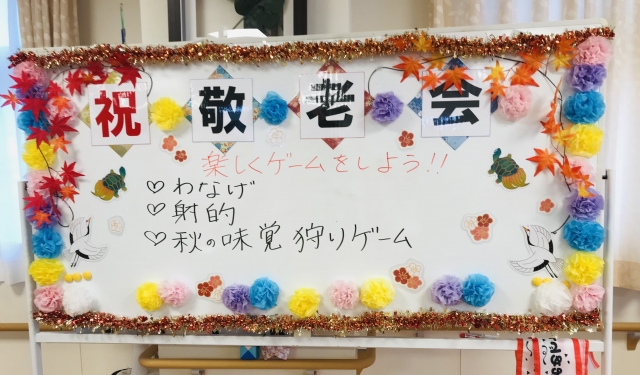 祝 敬老会
楽しくゲームをしよう!!
♡わなげ
♡射的
♡秋の味覚 狩りゲーム